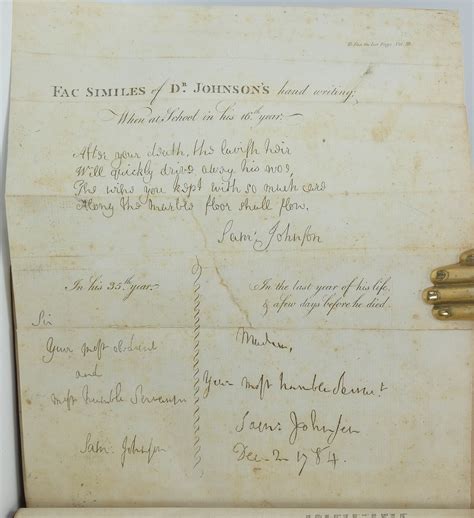 FAC SIMILES of DR. JOHNSON'S hand writing;
When at School in his 16th year.
After your death, the lavish heir
Will quickly drive away his woe,
The wine you kept with so much care
Along the marble floor shall flow.
Sam: Johnson
In his 35th year.
Sir
Your most obedient
and
most humble Servant
Sam: Johnson
In the last year of his life,
& a few days before he died.
Madam,
Your most humble Servt.
Sam: Johnson
Dec. 2 1784.